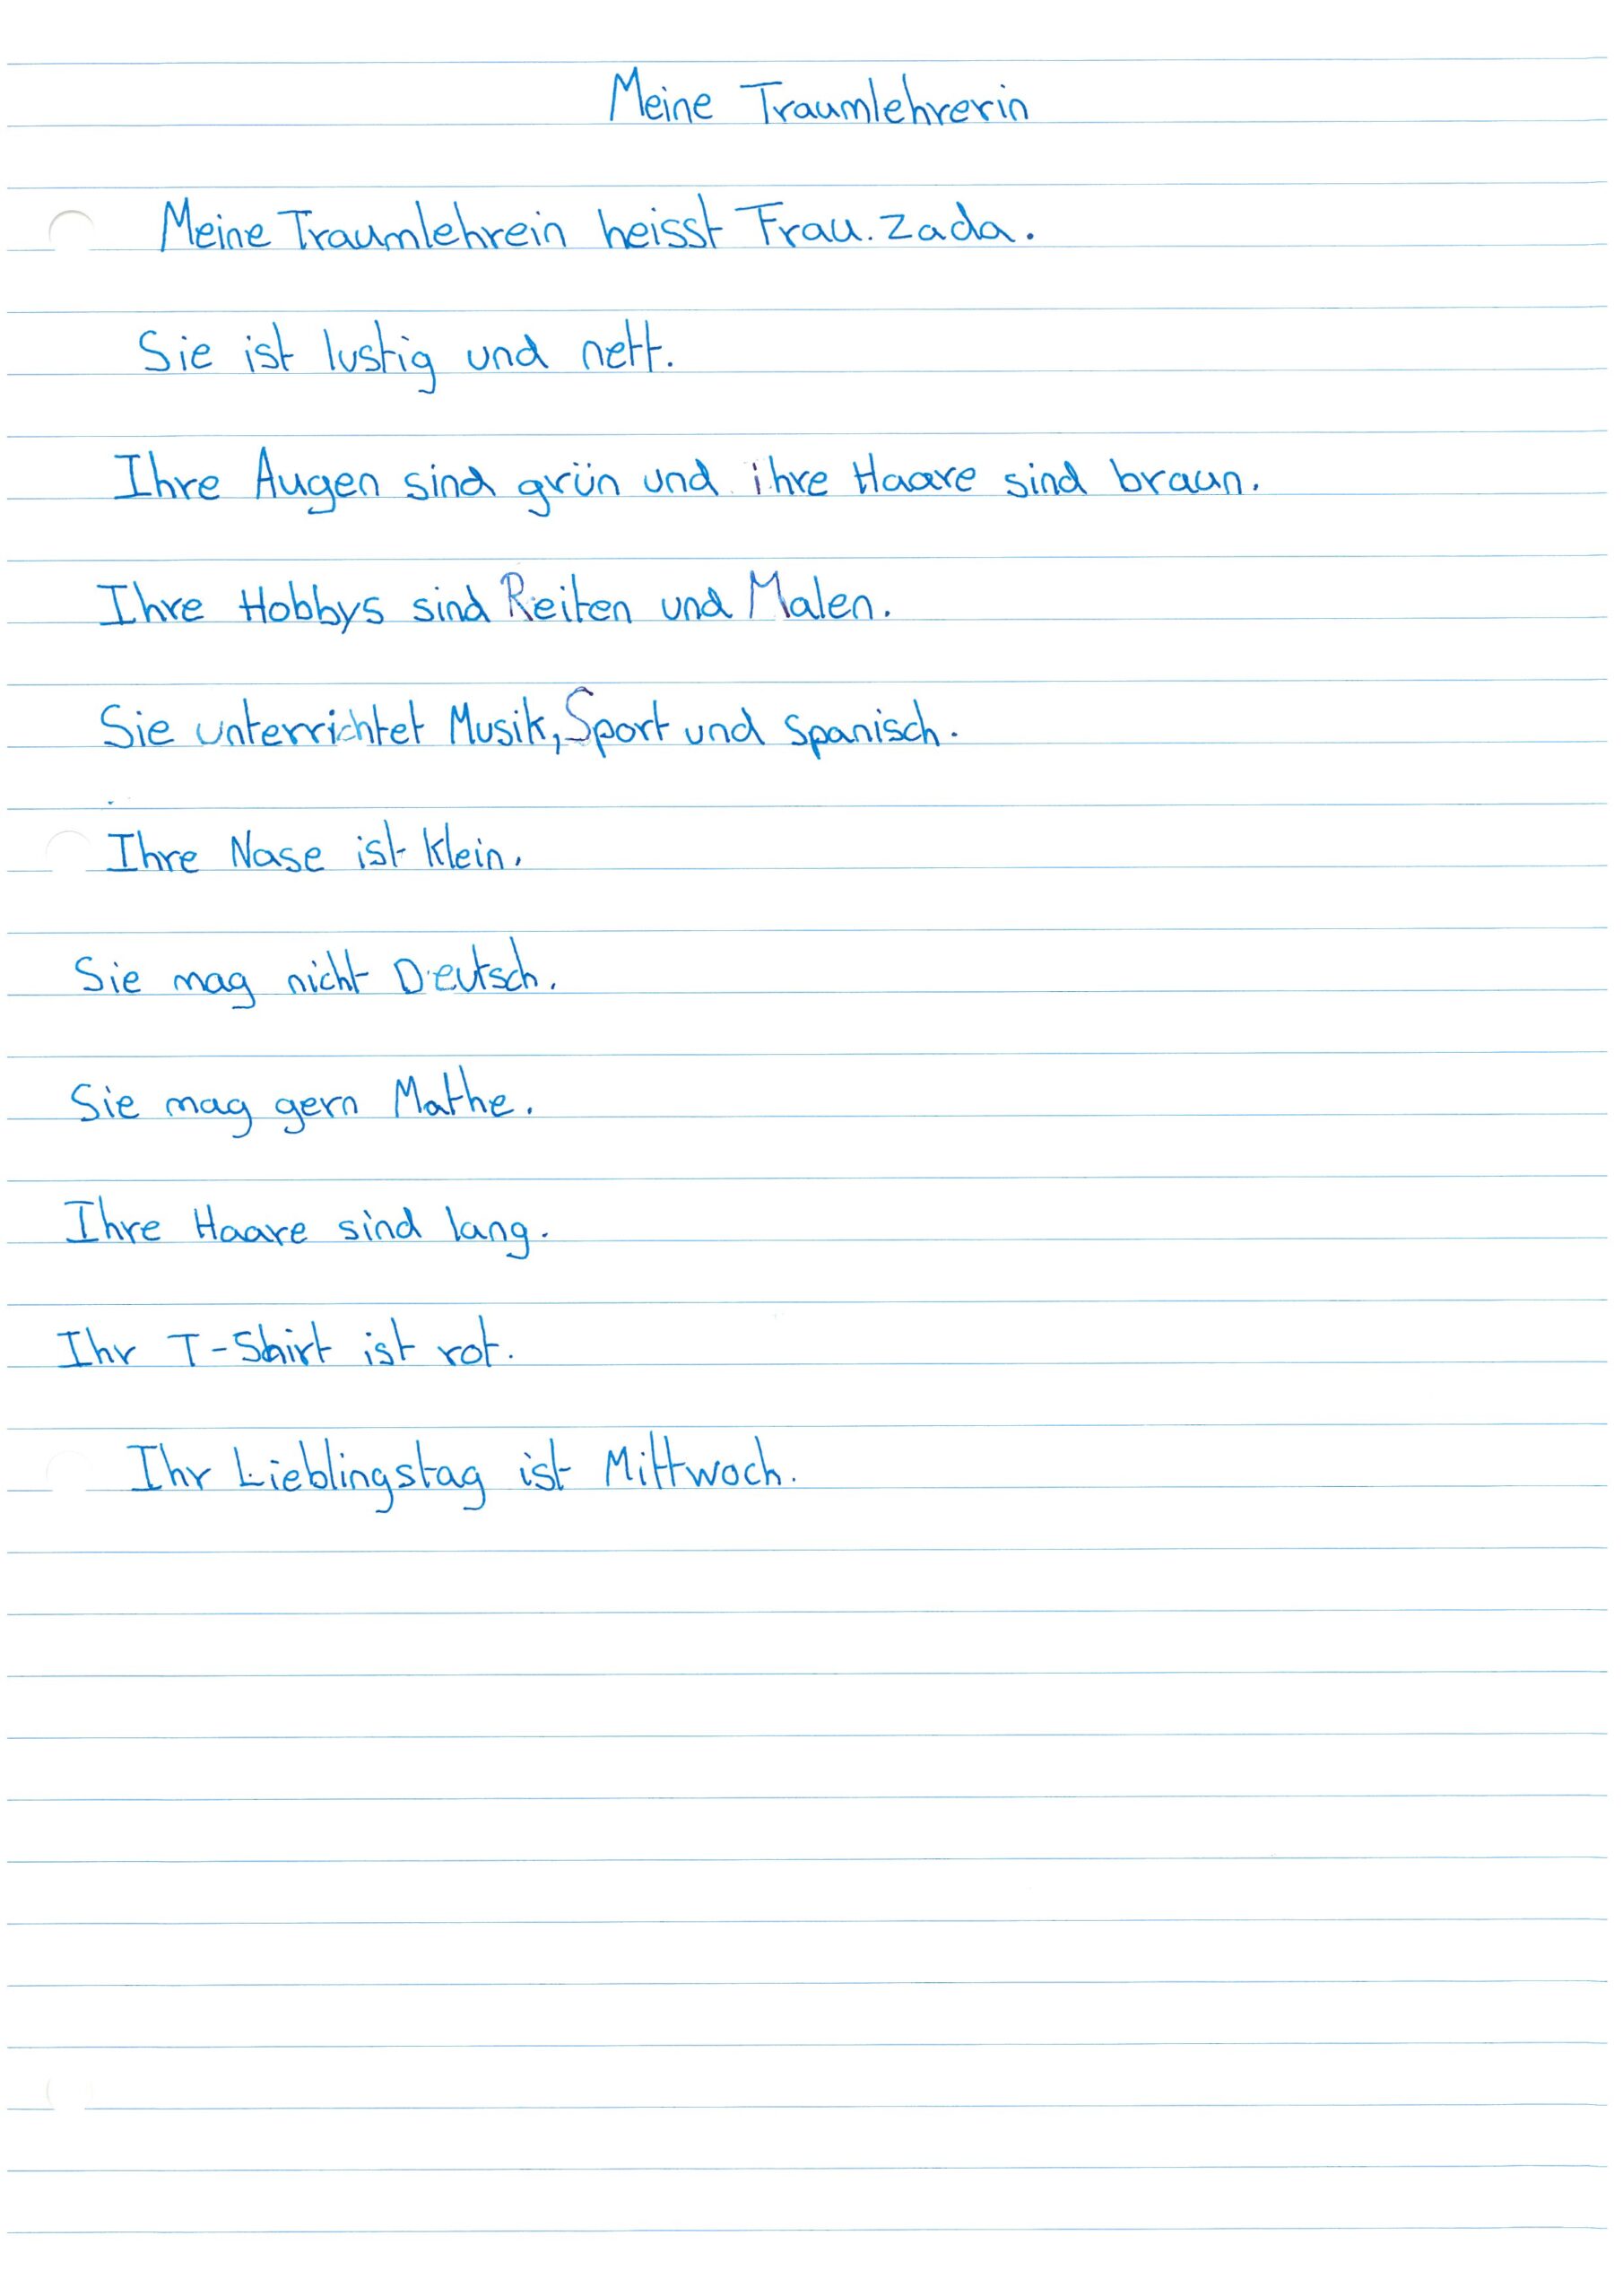 Meine Traumlehrerin
Meine Traumlehrein heisst Frau. Zada.
Sie ist lustig und nett.
Ihre Augen sind grün und ihre Haare sind braun.
Ihre Hobbys sind Reiten und Malen.
Sie unterrichtet Musik, Sport und Spanisch.
Ihre Nase ist klein.
Sie mag nicht Deutsch.
Sie mag gern Mathe.
Ihre Haare sind lang.
Ihr T-Shirt ist rot.
Ihr Lieblingstag ist Mittwoch.